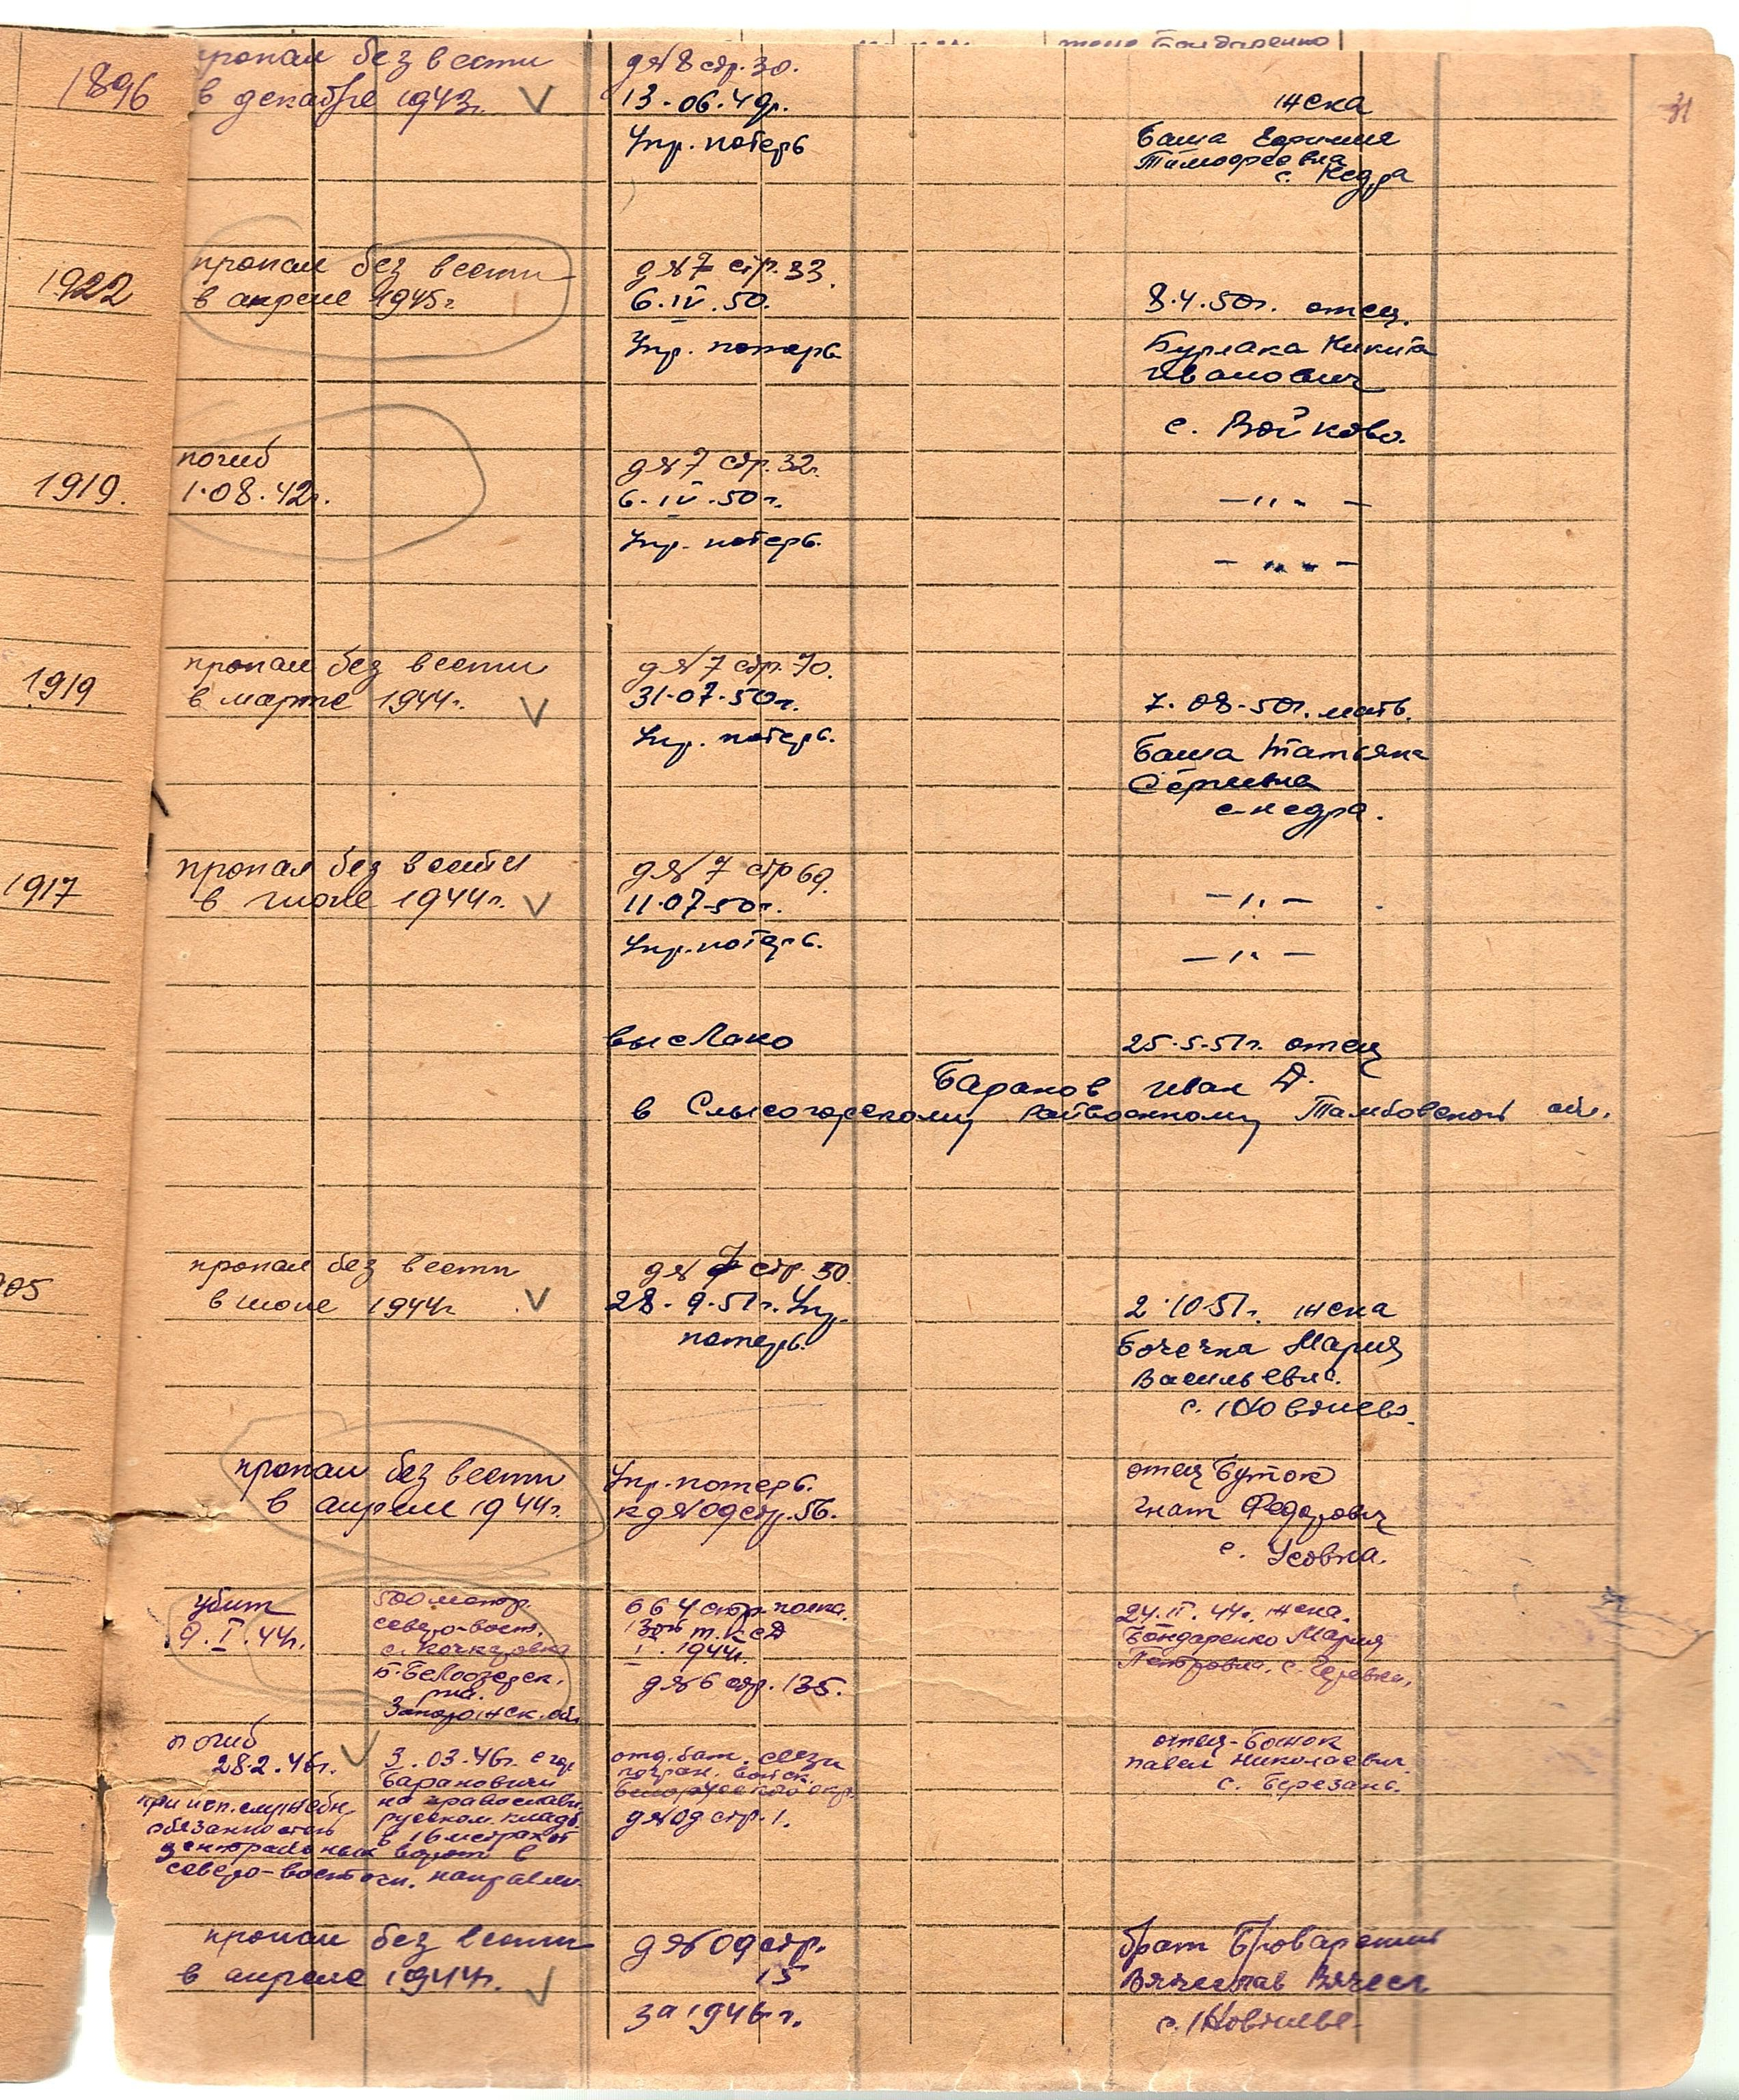 жена Бондаренко
31
1896
пропал без вести
в декабре 1943г.
д№8 стр. 30.
13.06.49г.
Упр. потерь
жена
Баша Ефимия
Тимофеевна
с. Недра
1922
пропал без вести
в апреле 1945г.
д№7 стр. 33.
6.IV.50.
Упр. потерь
8.4.50г. отец.
Бурлака Никита
Иванович
с. Войково.
1919.
погиб
1.08.42г.
д№7 стр. 32.
6.IV.50г.
Упр. потерь.
— 〃 —
— 〃 —
1919
пропал без вести
в марте 1944г.
д№7 стр. 70.
31.07.50г.
Упр. потерь.
7.08.50г. мать.
Баша Татьяна
Сергеевна
с. Недра.
1917
пропал без вести
в июле 1944г.
д№7 стр 69.
11.07.50г.
Упр. потерь.
— 〃 —
— 〃 —
выслано
25.5.51г. отец
Баранов Иван Д.
в райвоенкому Тамбовской обл.
05
пропал без вести
в июле 1944г
д№7 стр. 50.
28.9.51г. Упр.
потерь.
2.10.51г. жена
Бочечка Мария
Васильевна.
пропал без вести
в апреле 1944г.
Упр. потерь.
к д№09 стр. 56.
отец Буток
Гнат Федорович
с. Усовка.
убит
9.I.44г.
500 метр.
северо-вост.
Б-Белозерск.
р-на.
Запорожск. обл
664 стр. полка.
I. 1944г.
д№6 стр. 135.
24.II.44г. жена.
Бондаренко Мария
Петровна.
погиб
28.2.46г.
при исп. служебн.
обязанностей
3.03.46г. в гор.
Барановичи
на православн.
русском кладб.
в 16 метрах от
центральных ворот в
северо-восточн. направлен.
отд. бат. связи
погран. войск
Белорусского окр.
д№09 стр. 1.
отец-Бонок
Павел Николаевич.
с. Березань.
пропал без вести
в апреле 1944г.
д№09 стр.
15
за 1946г.
брат
Вячеслав Вячесл